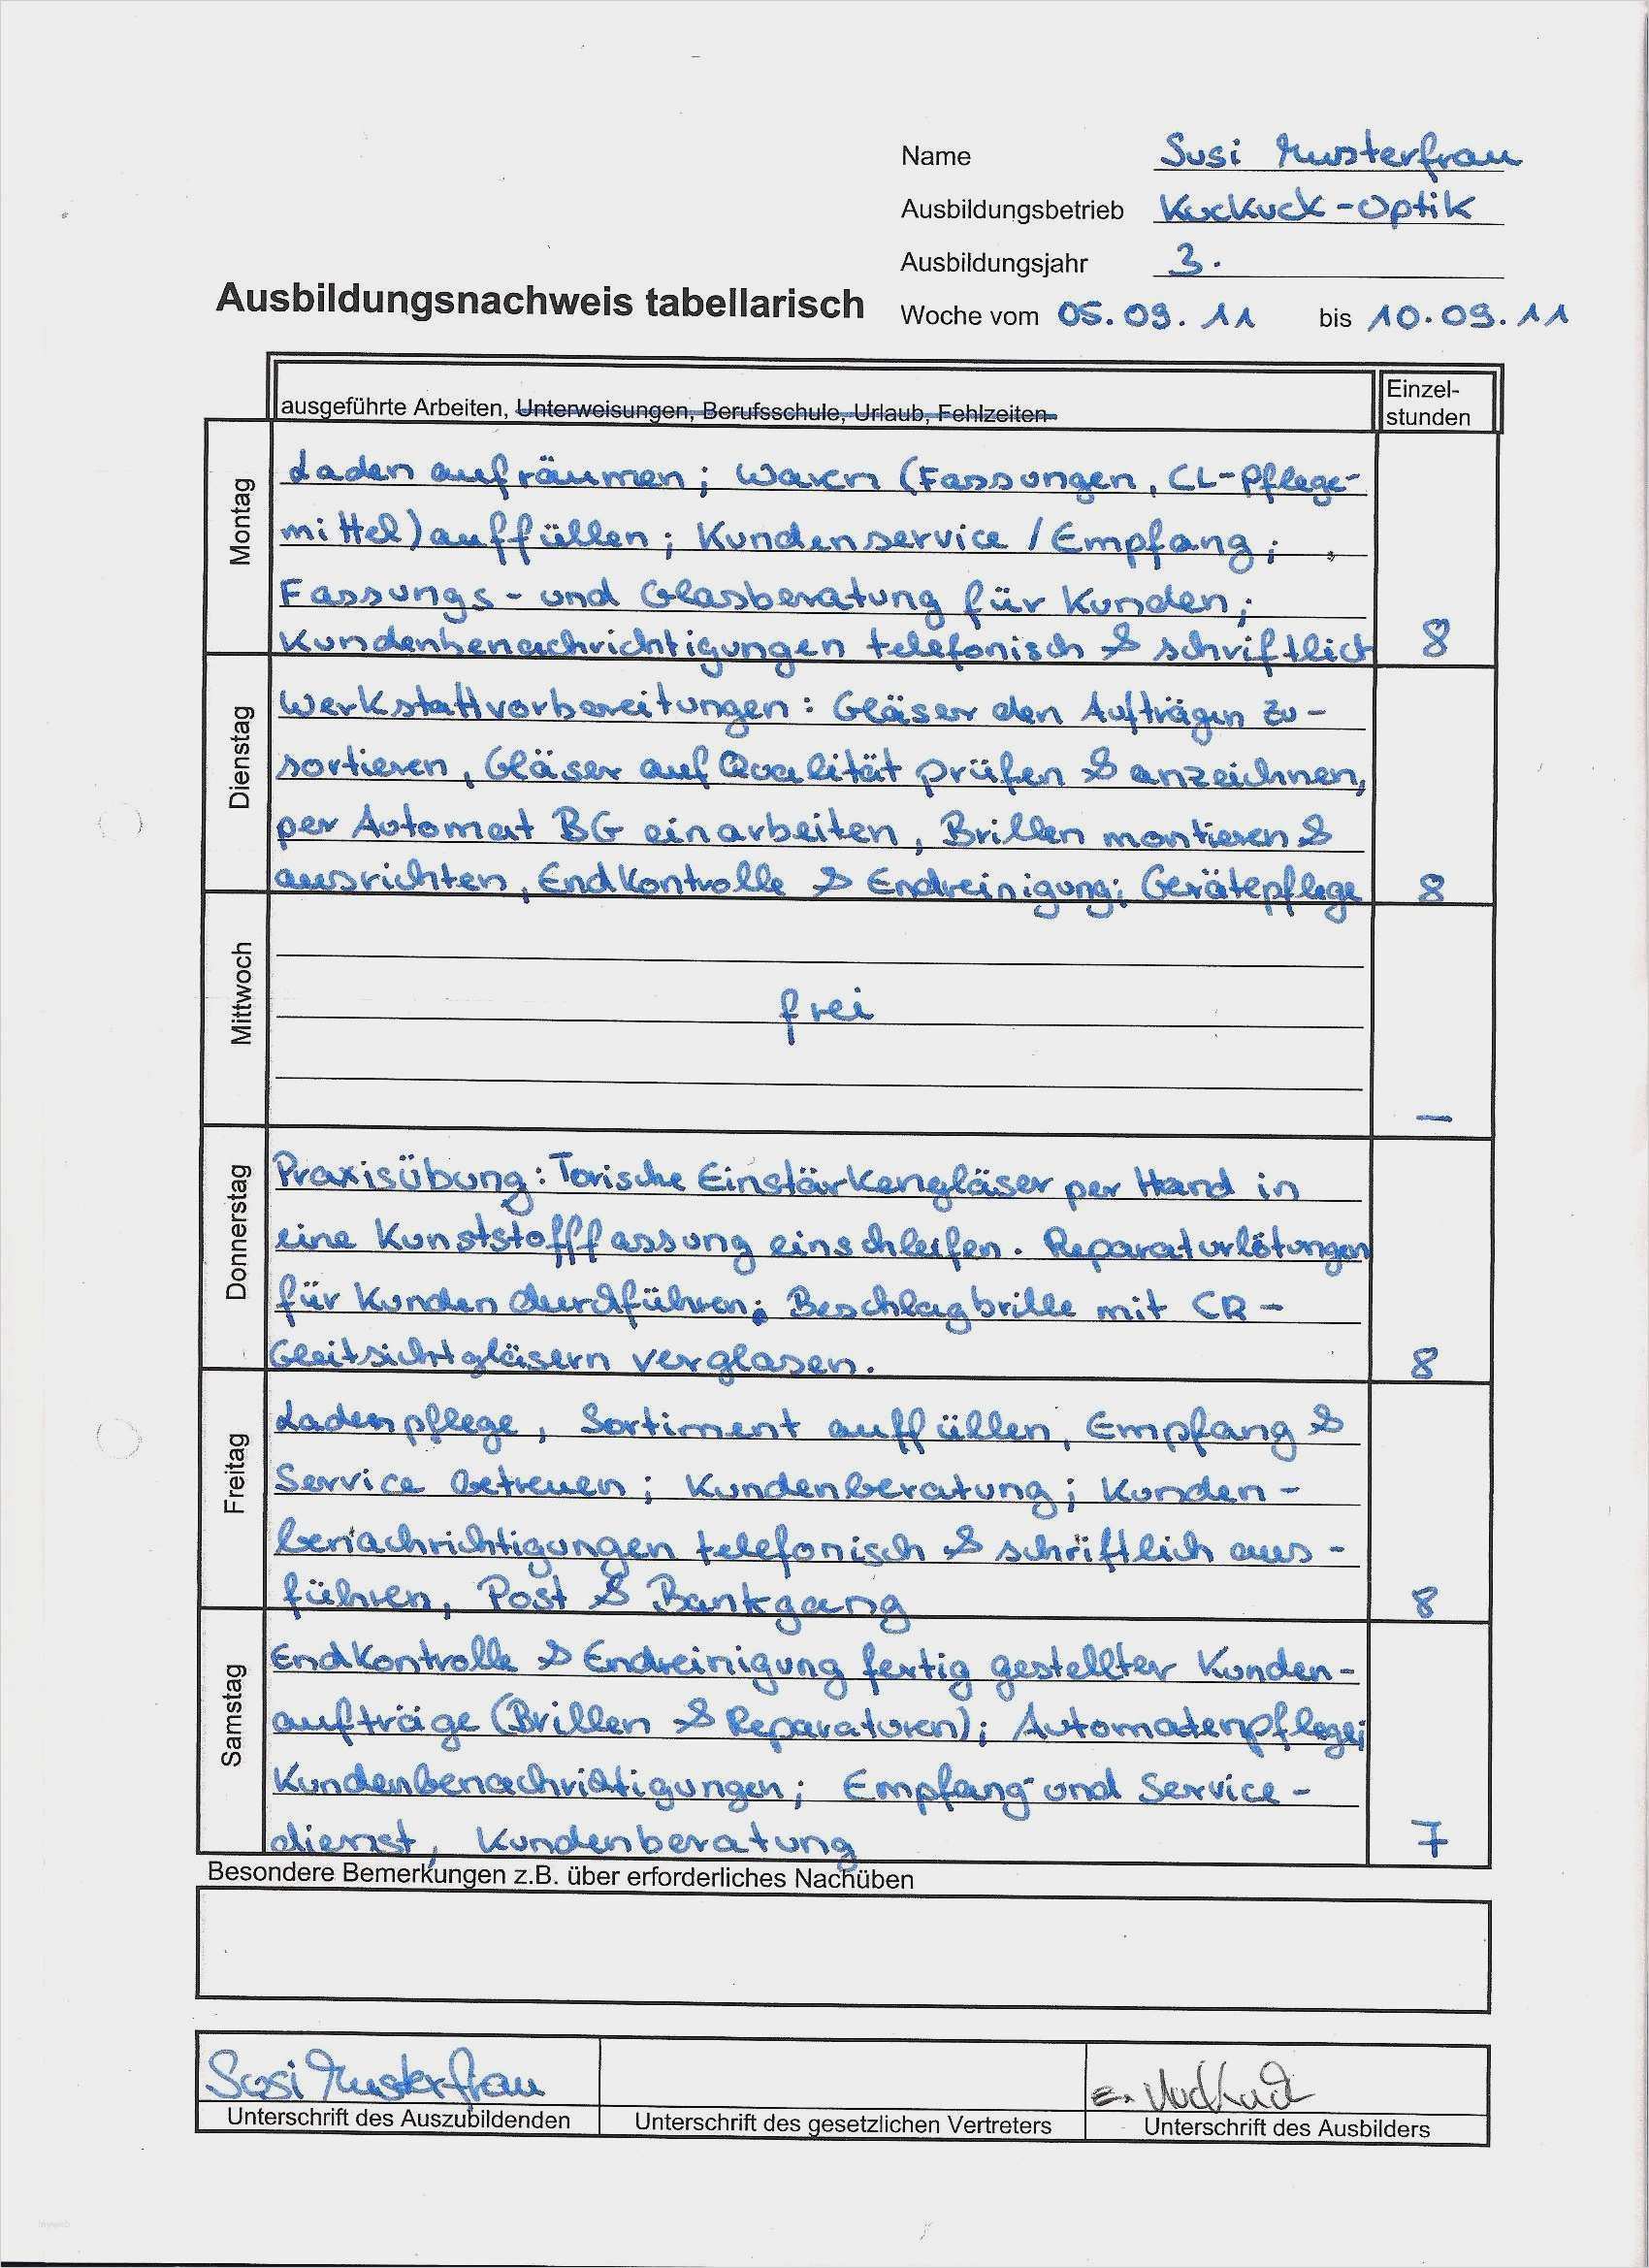 Name Susi Musterfrau
Ausbildungsbetrieb Kuckuck-Optik
Ausbildungsjahr 3.
Ausbildungsnachweis tabellarisch Woche vom 05.09.11 bis 10.09.11
ausgeführte Arbeiten, Unterweisungen, Berufsschule, Urlaub, Fehlzeiten
Einzel-
stunden
Montag
Laden aufräumen; Waren (Fassungen, CL-Pflege-
mittel) auffüllen; Kundenservice / Empfang;
Fassungs- und Glasberatung für Kunden;
Kundenbenachrichtigungen telefonisch & schriftlich 8
Dienstag
Werkstattvorbereitungen: Gläser den Aufträgen zu-
sortieren, Gläser auf Qualität prüfen & anzeichnen,
per Automat BG einarbeiten, Brillen montieren &
ausrichten, Endkontrolle & Endreinigung; Gerätepflege 8
Mittwoch
frei
—
Donnerstag
Praxisübung: Torische Einstärkengläser per Hand in
eine Kunststofffassung einschleifen. Reparaturlötungen
für Kunden durchführen; Beschlagbrille mit CR-
Gleitsichtgläsern verglasen. 8
Freitag
Ladenpflege, Sortiment auffüllen, Empfang &
Service betreuen; Kundenberatung; Kunden-
benachrichtigungen telefonisch & schriftlich aus-
führen, Post & Bankgang 8
Samstag
Endkontrolle & Endreinigung fertig gestellter Kunden-
aufträge (Brillen & Reparaturen); Automatenpflege;
Kundenbenachrichtigungen; Empfang und Service-
dienst, Kundenberatung 7
Besondere Bemerkungen z.B. über erforderliches Nachüben
Susi Musterfrau E.
Unterschrift des Auszubildenden Unterschrift des gesetzlichen Vertreters Unterschrift des Ausbilders